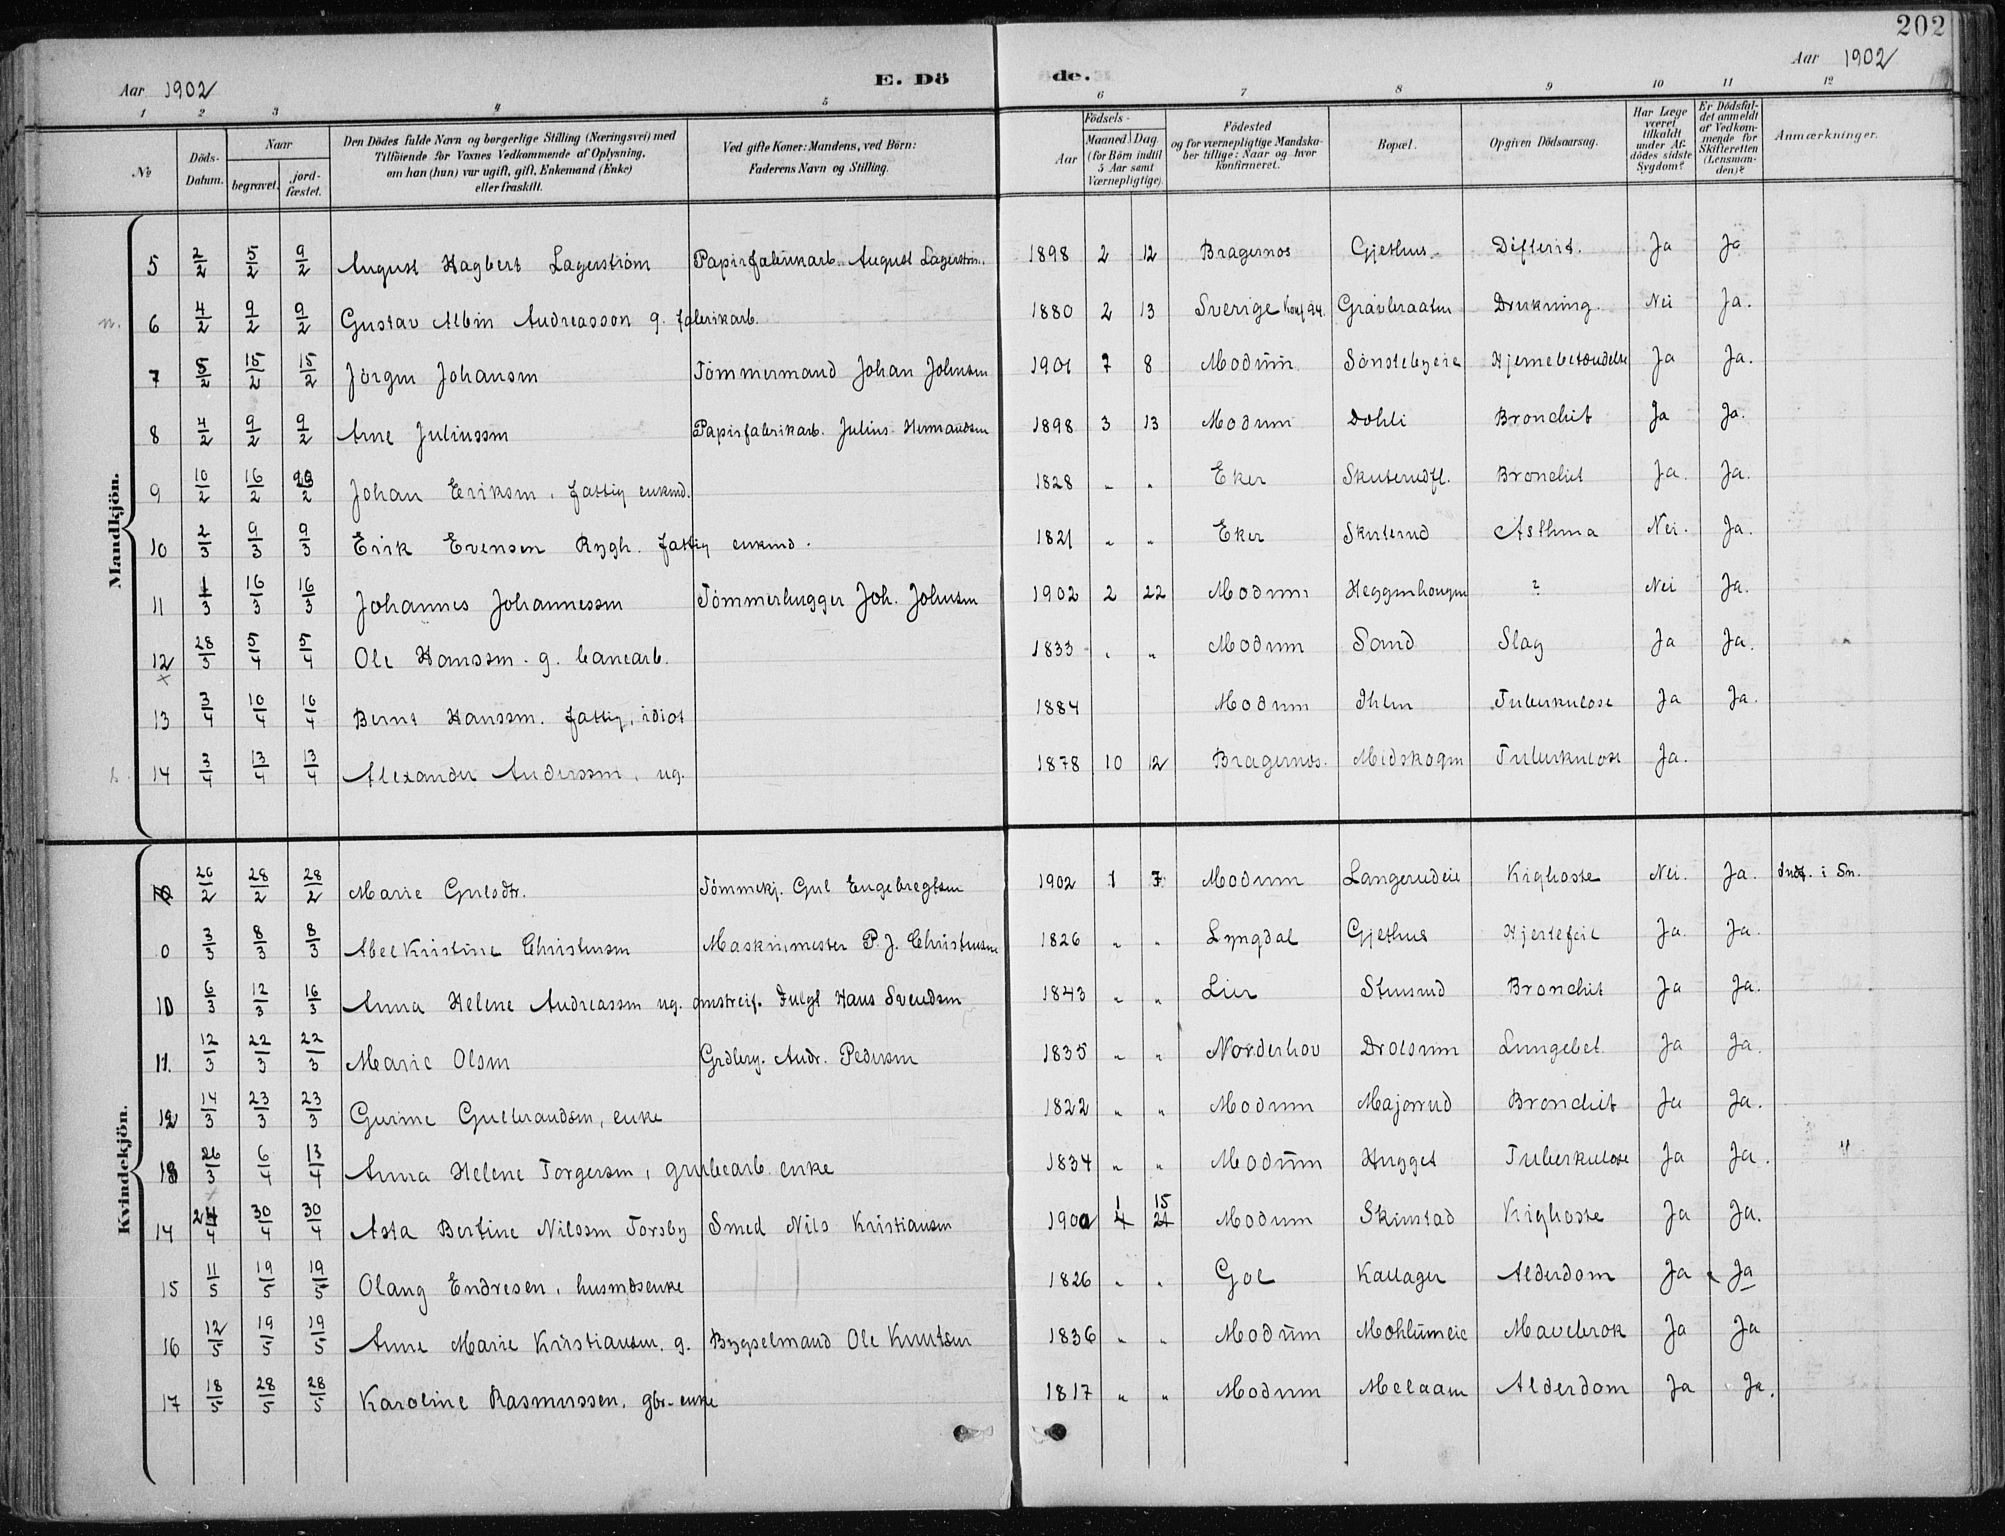 202
Aar 1902
E. Dö
de.
Aar 1902
1 2 3 4 5 6 7 8 9 10 11 12
№ Döds-Datum. Naar begravet. jord-fæstet. Den Dödes fulde Navn og borgerlige Stilling (Næringsvei) med Tilföiende for Voxnes Vedkommende af Oplysning, om han (hun) var ugift, gift, Enkemand (Enke) eller fraskilt. Ved gifte Koner: Mandens, ved Börn: Faderens Navn og Stilling. Födsels- Aar Maaned Dag (for Börn indtil 5 Aar samt Værnepligtige) Födested og for værnepligtige Mandskaber tillige: Naar og hvor konfirmeret. Bopæl. Opgiven Dödsaarsag. Har Læge været tilkaldt under Afdödes sidste Sygdom? Er Dödsfaldet anmeldt af Vedkommende for Skifteretten (Lensmanden)? Anmærkninger.
Mandkjön.
5 2/2 5/2 9/2 August Hagbert Lagerström Papirfabrikarb. August Lagerström. 1898 2 12 Bragernes Gjethus Difterit. Ja Ja
n. 6 4/2 9/2 9/2 Gustav Albin Andreasson g. fabrikarb. 1880 2 13 Sverige konf 94. Gravbraaten Drukning. Nei Ja.
7 5/2 15/2 15/2 Jörgen Johansen Tömmermand Johan Johnsen 1901 7 8 Modum Sönstebyeie Hjernebetændelse Ja Ja.
8 4/2 9/2 9/2 Arne Juliussen Papirfabrikarb. Julius Hermandsen 1898 3 13 Modum Dohli Bronchit Ja Ja.
9 10/2 16/2 Johan Eriksen, fattig enkmd. 1828 " " Eker Skuterudfl. Bronchit Ja. Ja.
10 2/3 9/3 9/3 Erik Evensen Rygh. fattig enkmd. 1821 " " Eker Skuterud Asthma Nei. Ja.
11 1/3 16/3 16/3 Johannes Johannessen Tömmerhugger Joh. Johnsen 1902 2 22 Modum Heggenhougen ? Nei Ja.
12 x 28/3 5/4 5/4 Ole Hanssen. g. banearb. 1833 " " Modum Sand Slag Ja Ja. "
13 3/4 10/4 10/4 Bernt Hanssen. fattig, idiot 1884 Modum Ihlen Tuberkulose Ja Ja.
14 3/4 13/4 13/4 Alexander Anderssen, ug. 1878 10 12 Bragernes. Midskogen Tuberkulose Ja.
Kvindekjön.
26/2 28/2 28/2 Marie Gulsdtr. Tömmekj. Gul Engebregtsen 1902 1 7 Modum Langerudeie Kighoste Nei. Ja. Indf. i Sn.
0 3/3 8/3 8/3 Abel Kristine Christensen Maskinmester P. J. Christensen 1826 " " Lyngdal Gjethus Hjertefeil Ja Ja.
10 6/3 12/3 16/3 Anna Helene Andreassen ug. omstreif. Fulgt Hans Svendsen 1843 " " Lier Stensrud Bronchit Ja Ja.
11. 12/3 22/3 22/3 Marie Olsen Grdbrg. Andr. Pedersen 1835 " " Norderhov Drolsum Lungebet. Ja Ja.
12 14/3 23/3 23/3 Gurine Gulbrandsen, enke 1822 " " Modum Majorrud Bronchit Ja Ja.
13 26/3 6/4 13/4 Anna Helene Torgersen, grubearb. enke 1834 " " Modum Hugget Tuberkulose Ja Ja. "
14 24/4 30/4 30/4 Asta Bertine Nilssen Torsby Smed Nils Kristiansen 1900 1 4 15 24 Modum Skinstad Kighoste Ja Ja.
15 11/5 19/5 19/5 Olang Endresen, husmdsenke 1826 " " Gol Kallager Alderdom Ja Ja
16 12/5 19/5 19/5 Anne Marie Kristiansen. g. Bygselmand Ole Knutsen 1836 " " Modum Mohlumeie Mavebrok Ja Ja
17 18/5 28/5 28/5 Karoline Rasmussen. gbr-enke 1817 " " Modum Melaaen Alderdom Ja Ja.